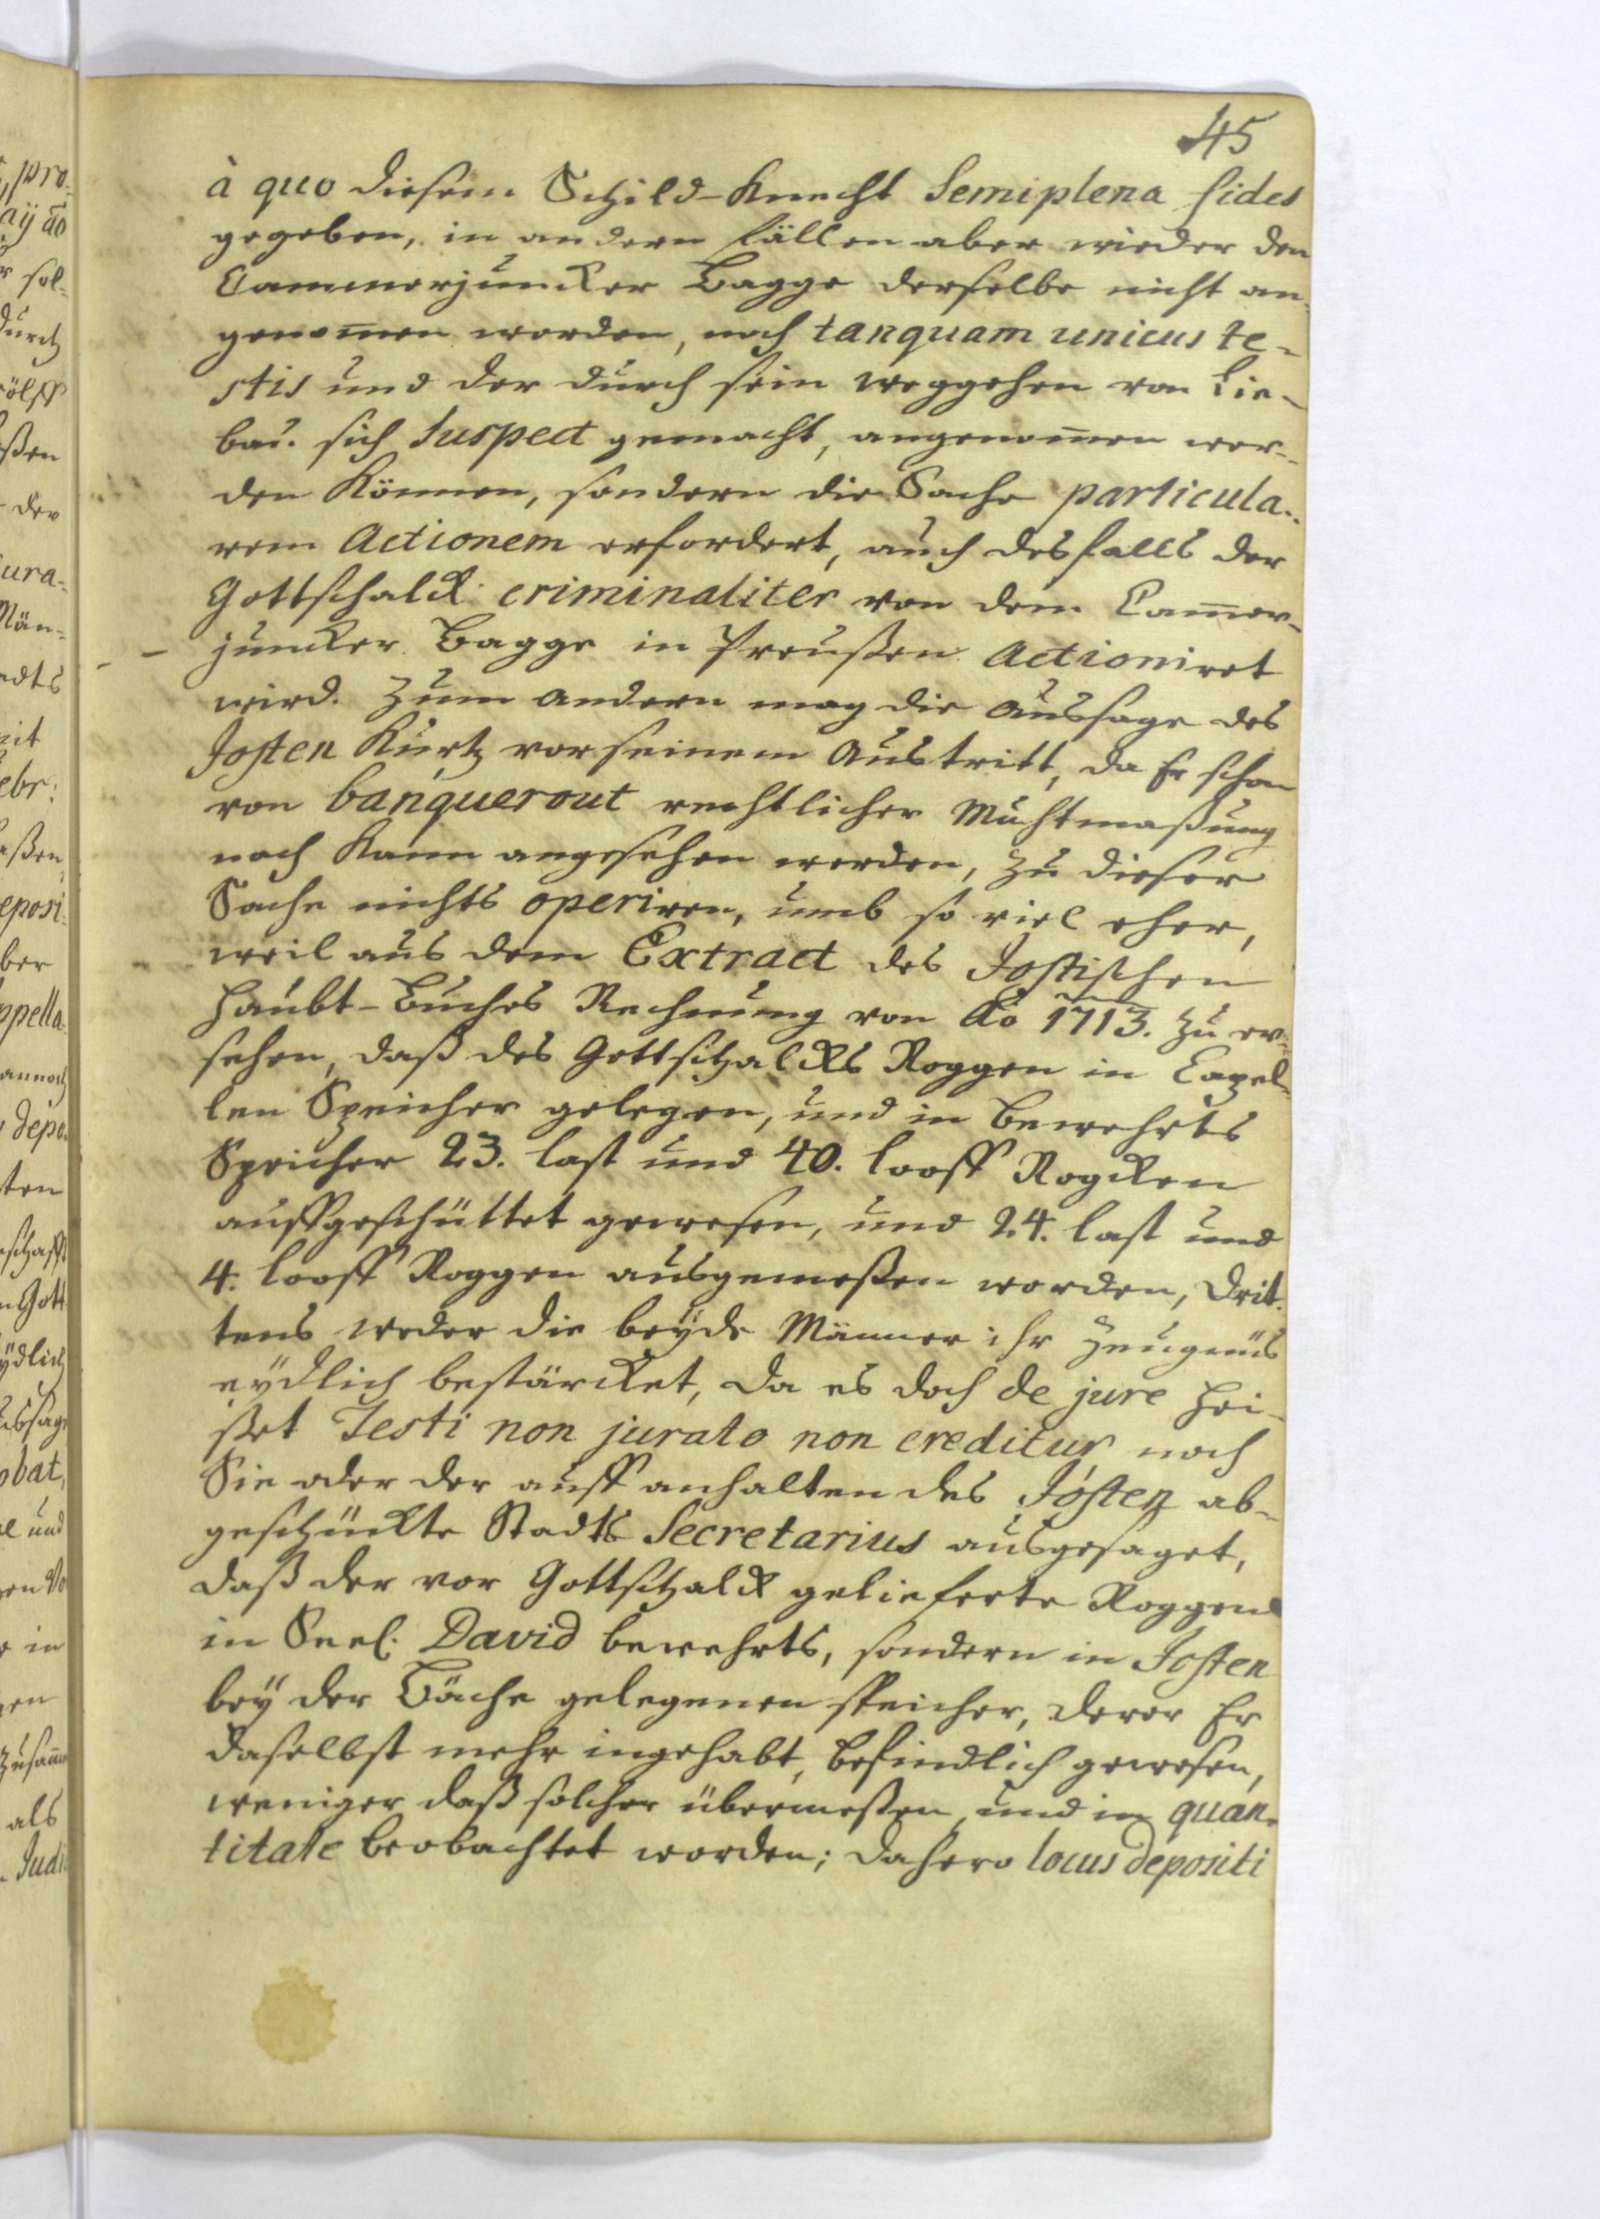 45
à quo diesem Schild-Knecht Semiplena fides
gegeben, in andern fällen aber wieder den
Cammerjuncker Bagge derselbe nicht an-
genom̄en worden, noch tanquam unicus te-
stis und der durch sein weggehen von Lie-
bau sich suspect gemacht, angenom̄en wer-
den können, sondern die Sache particula-
rem Actionem erfordert, auch desfalls der
Gottschalck criminaliter von dem Cam̄er-
juncker Bagge in Preußen Actioniret
wird. Zum andern mag die Aussage des
Josten Kurtz vor seinem Austritt, da Er schon
von banquerout rechtlicher Muhtmaßung
nach kann angesehen werden, zu dieser
Sache nichts operiren, umb so viel eher,
weil aus dem Extract des Jostischen
Haubt-Buches Rechnung von Ao 1713. zu er-
sehen, daß des Gottschalcks Roggen in Capel-
len Speicher gelegen, und in Bewehrts
Speicher 23. last und 40. looff Rogcken
auffgeschüttet gewesen, und 24. last und
4. looff Roggen ausgemeßen worden, Drit-
tens weder die beyde Männer ihr Zeugnüs
eydlich bestärcket, da es doch de jure hei-
ßet Testi non jurato non creditur, noch
Sie oder der auff anhalten des Josten ab-
geschickte Stadts Secretarius ausgesaget,
daß der vor Gottschalck gelieferte Roggen
in Seel. David bewehrts, sondern in Josten
bey der Bäche gelegenen speicher, derer Er
daselbst mehr ingehabt, befindlich gewesen,
weniger daß solcher übermeßen und in quan-
titate beobachtet worden; dahero locus depositi